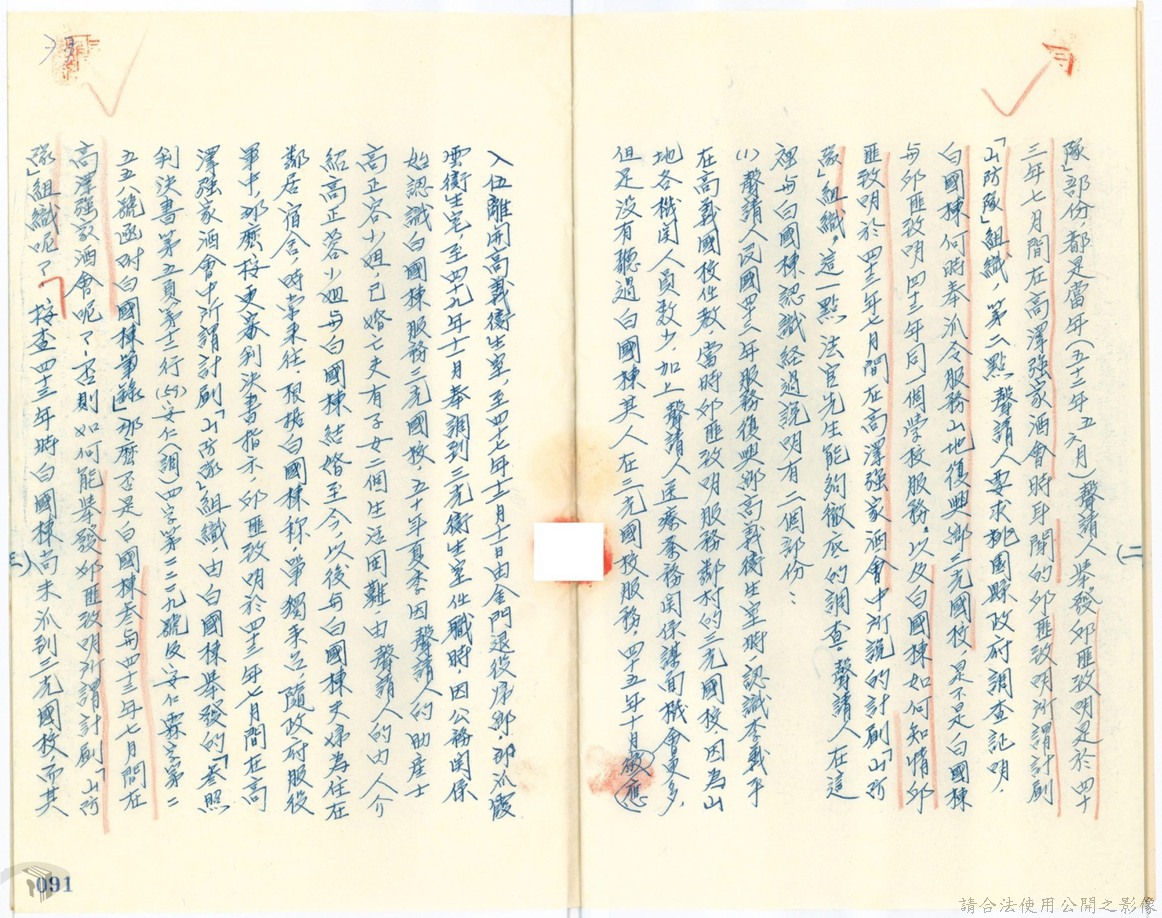 (二
隊」部份都是當年(五十三年五六月)聲請人舉發邱匪致明是於四十
三年七月間在高澤強家酒會時耳聞的邱匪致明所謂計劃
「山防隊」組織,第二點聲請人要求桃園縣政府調查証明,
白國棟何時奉派令服務山地復興鄉三光國校,是不是白國棟
与邱匪致明四十三年同一個學校服務。以及白國棟如何知情邱
匪致明於四十三年七月間在高澤強家酒會中所說的計劃「山防
隊」組織,這一點法官先生能夠徹底的調查,聲請人在這
裡与白國棟認識経過說明有二個部份:
(1)聲請人民國四十三年服務復興鄉高義衛生室時,認識李義平
在高義國校任教,當時邱匪致明服務鄰村的三光國校,因為山
地各機関人員較少,加上聲請人医療業務関係謀面機會更多,
但是沒有聽過白國棟其人在三光國校服務,四十五年十月徵(應)
入伍離開高義衛生室,至四十七年十二月十日由金門退役帰鄉,即派霞
雲衛生室,至四十九年十二月奉調到三光衛生室任職時,因公務関係
始認識白國棟服務三光國校,五十年夏季因聲請人的助産士
高正容小姐已婚亡夫有子女二個生活困難,由聲請人的內人介
紹高正容小姐与白國棟結婚至今,以後与白國棟夫婦為住在
鄰居宿舍,時常來往,根據白國棟称,單獨來台,隨政府服役
軍中,那麼按更審判決書指示,邱匪致明於四十三年七月間在高
澤強家酒會中所謂計劃「山防隊」組織,由白國棟舉發的「参照
判決書第五頁第十二行(59)安仁(調)四字第二二九號及安仁霖字第二
五五八號函附白國棟筆錄」那麼否是白國棟参与四十三年七月間在
高澤強家酒會呢?,否則如何能舉發邱匪致明所謂計劃「山防
隊」組織呢?按查四十三年時白國棟尚未派到三光國校而其
三)
091
請合法使用公開之影像